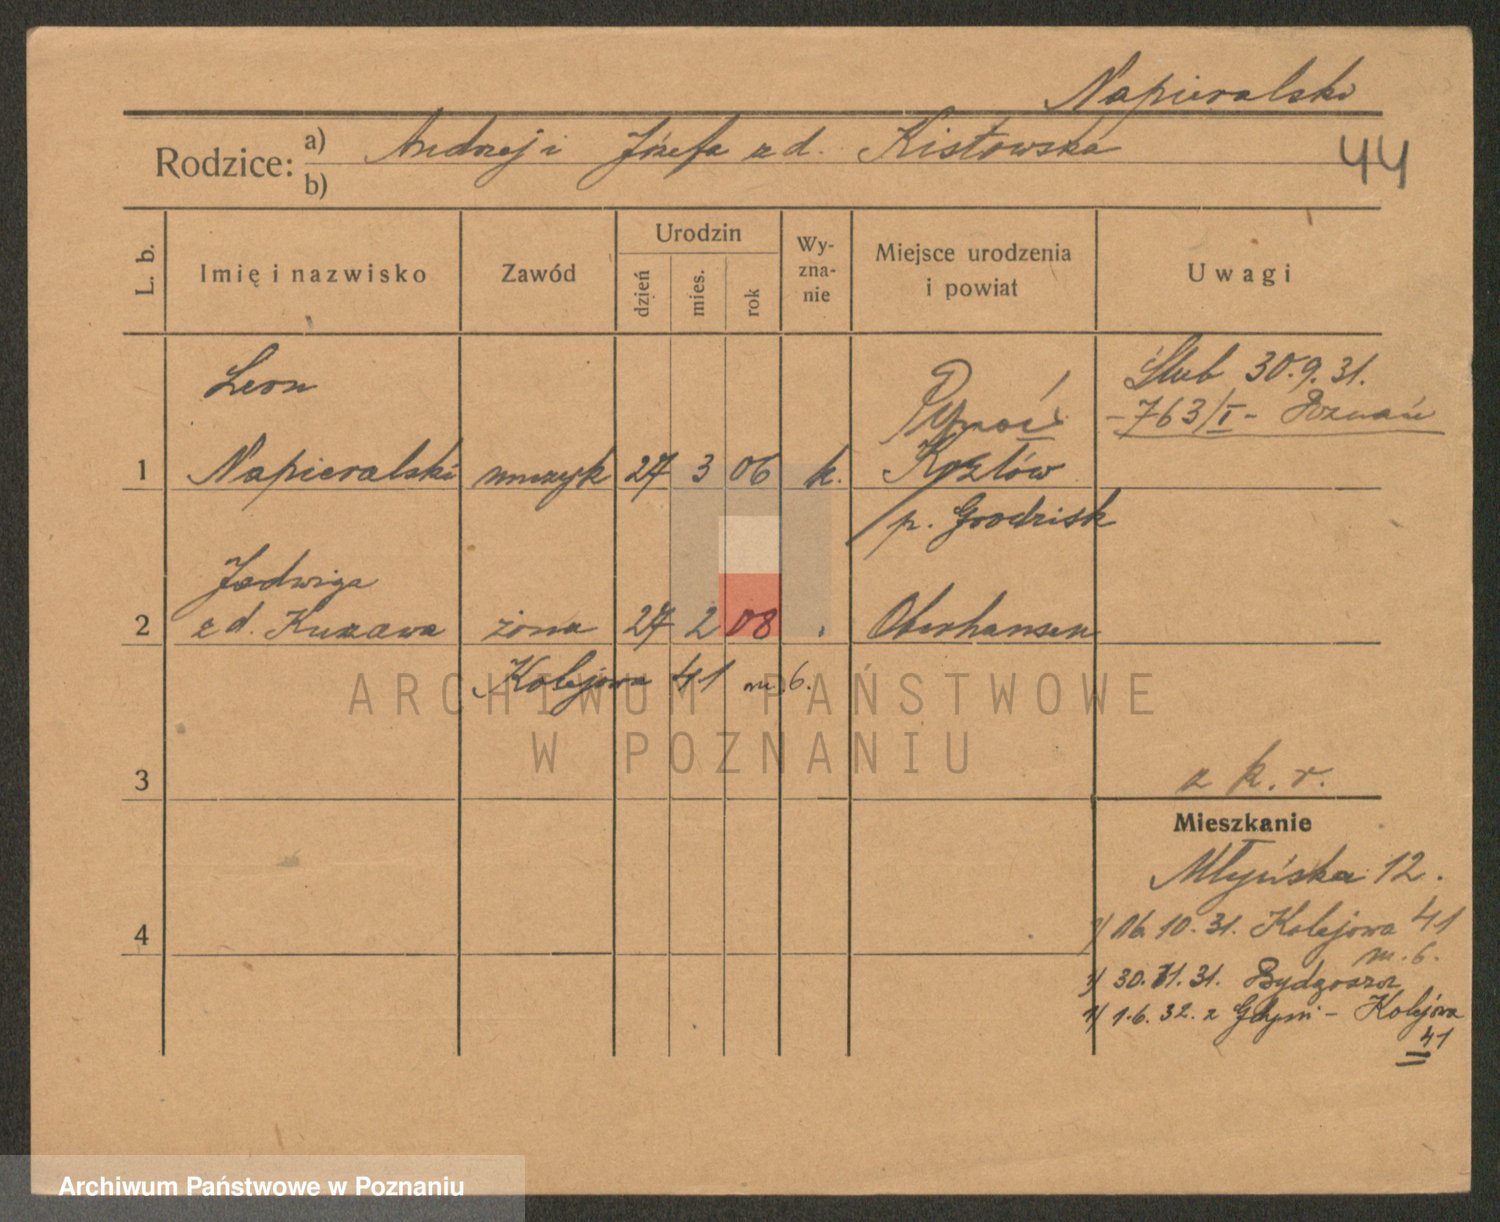 Napieralski
Rodzice: a) Andrzej i Józefa z d. Kistowska
b)
44
L. b.
Imię i nazwisko
Zawód
Urodzin
dzień
mies.
rok
Wy-
zna-
nie
Miejsce urodzenia
i powiat
Uwagi
Leon
Ślub 30.9.31.
-763/I- Poznań
1 Napieralski muzyk 27 3 06 k. Kozłów
p. Grodzisk
Jadwiga
2 z d. Kuzawa żona 27 2 08 Oberhausen
Kolejowa 41 m. 6.
ARCHIWUM PAŃSTWOWE
W POZNANIU
3
z k. r.
Mieszkanie
Młyńska 12.
4
1) 16.10.31. Kolejowa 41
m. 6.
1) 30.11.31. Bydgoszcz
1) 1.6.32. z Gdyni - Kolejowa
41
Archiwum Państwowe w Poznaniu